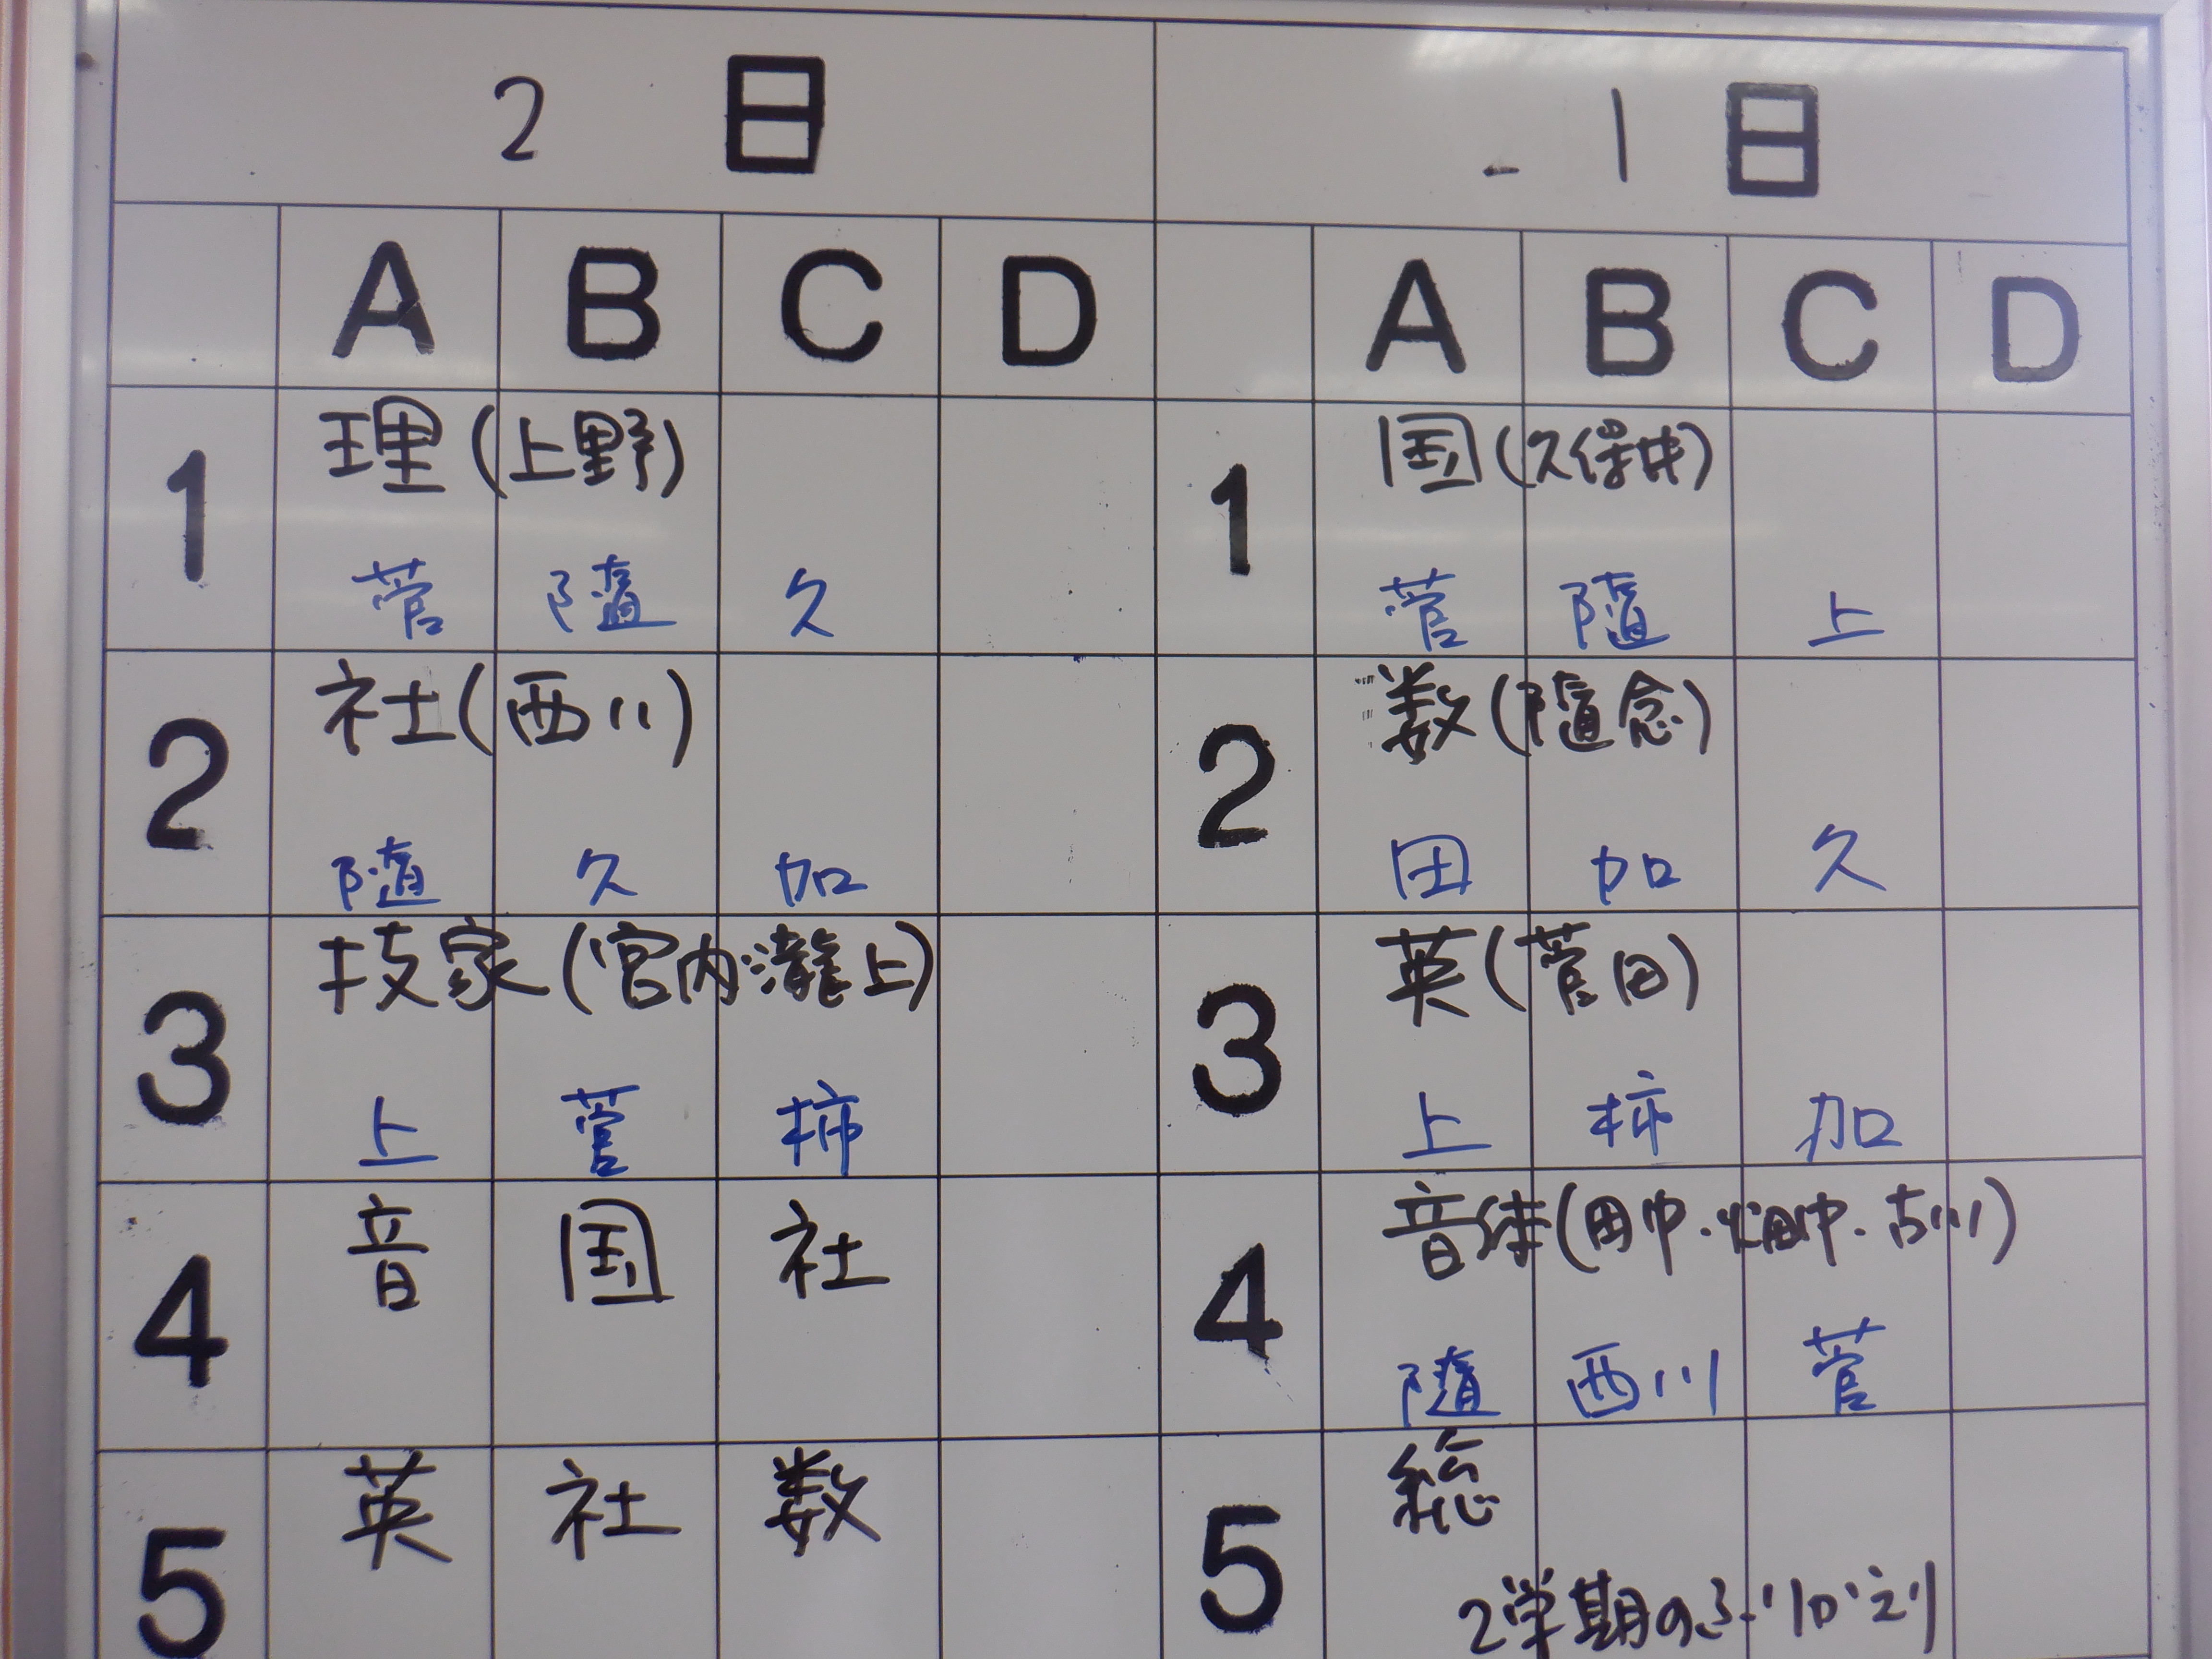 2 日
1 日
A B C D
A B C D
1 理(上野)
菅 隨 久
2 社(西川)
隨 久 加
3 技家(宮内瀧上)
上 菅 柿
4 音 国 社
5 英 社 数
1 国(久保井)
菅 隨 上
2 数(隨念)
田 加 久
3 英(菅田)
上 柿 加
4 音体(田中・畑中・古川)
隨 西川 菅
5 総
2学期のふりかえり